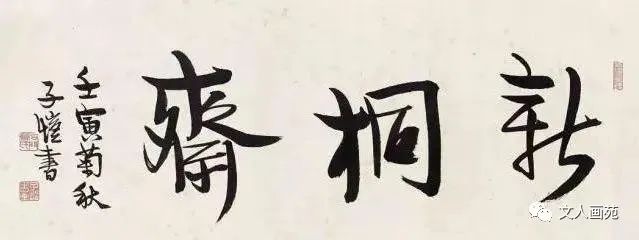 新桐齋
壬寅菊秋
子愷書
文人画苑